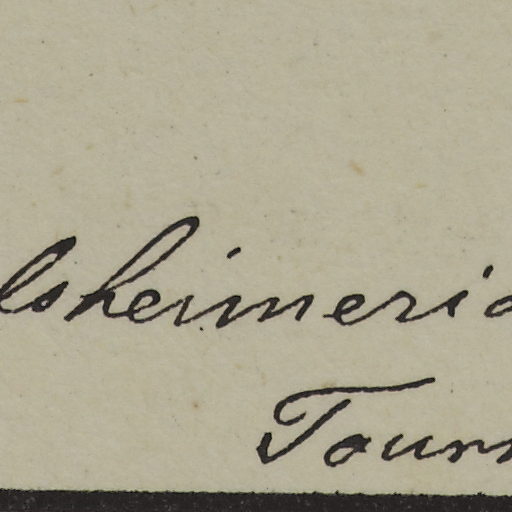 lsheimeria
Tourn